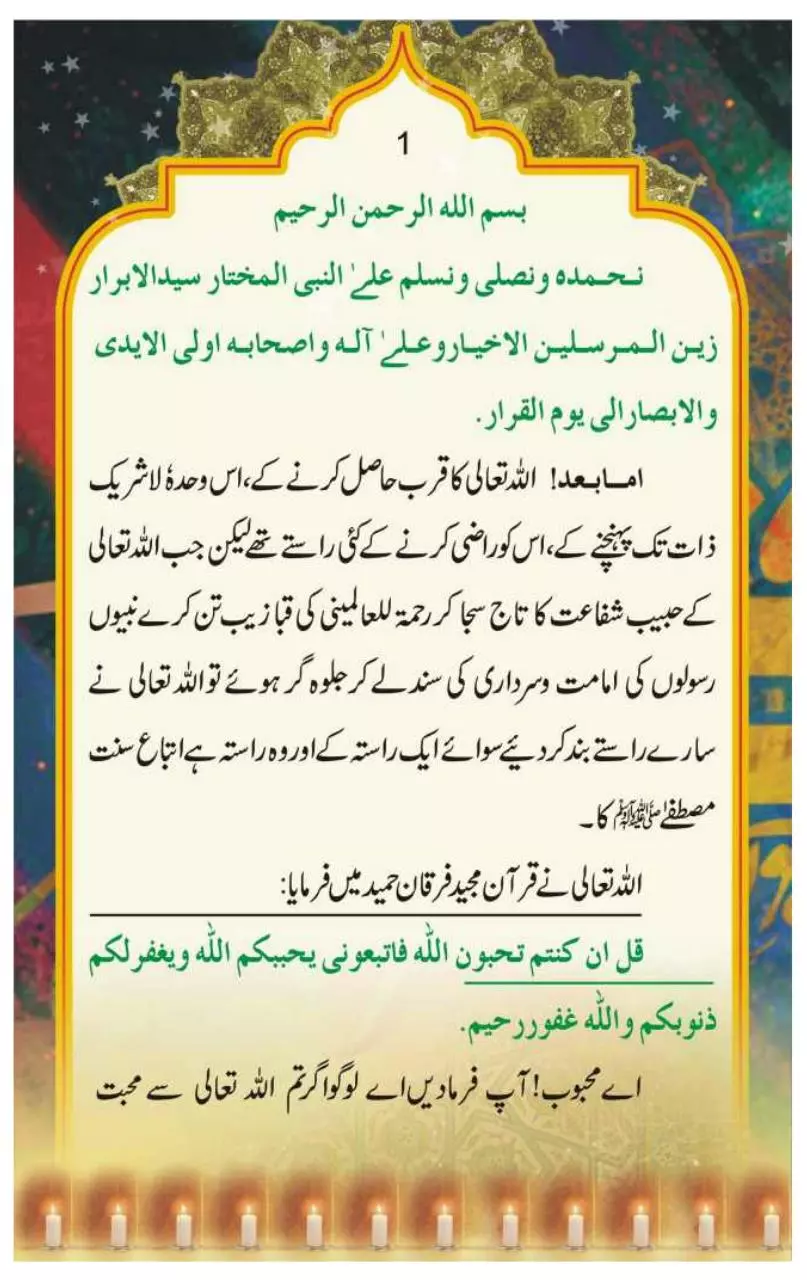 1
بسم الله الرحمن الرحيم
نحمده ونصلى ونسلم علےٰ النبى المختار سيدالابرار
زين المرسلين الاخياروعلےٰ آله واصحابه اولى الايدى
والابصارالى يوم القرار.
امابعد! اللہ تعالیٰ کا قرب حاصل کرنے کے، اس وحدہٗ لاشریک
ذات تک پہنچنے کے، اس کو راضی کرنے کے کئی راستے تھے لیکن جب اللہ تعالی
کے حبیب شفاعت کا تاج سجا کر رحمۃ للعالمینی کی قبا زیب تن کرے نبیوں
رسولوں کی امامت وسرداری کی سند لے کر جلوہ گر ہوئے تو اللہ تعالی نے
سارے راستے بند کر دیئے سوائے ایک راستہ کے اور وہ راستہ ہے اتباع سنت
مصطفےٰ ﷺ کا۔
اللہ تعالی نے قرآن مجید فرقان حمید میں فرمایا:
قل ان كنتم تحبون الله فاتبعونى يحببكم الله ويغفرلكم
ذنوبكم والله غفوررحيم.
اے محبوب! آپ فرمادیں اے لوگو اگر تم اللہ تعالی سے محبت